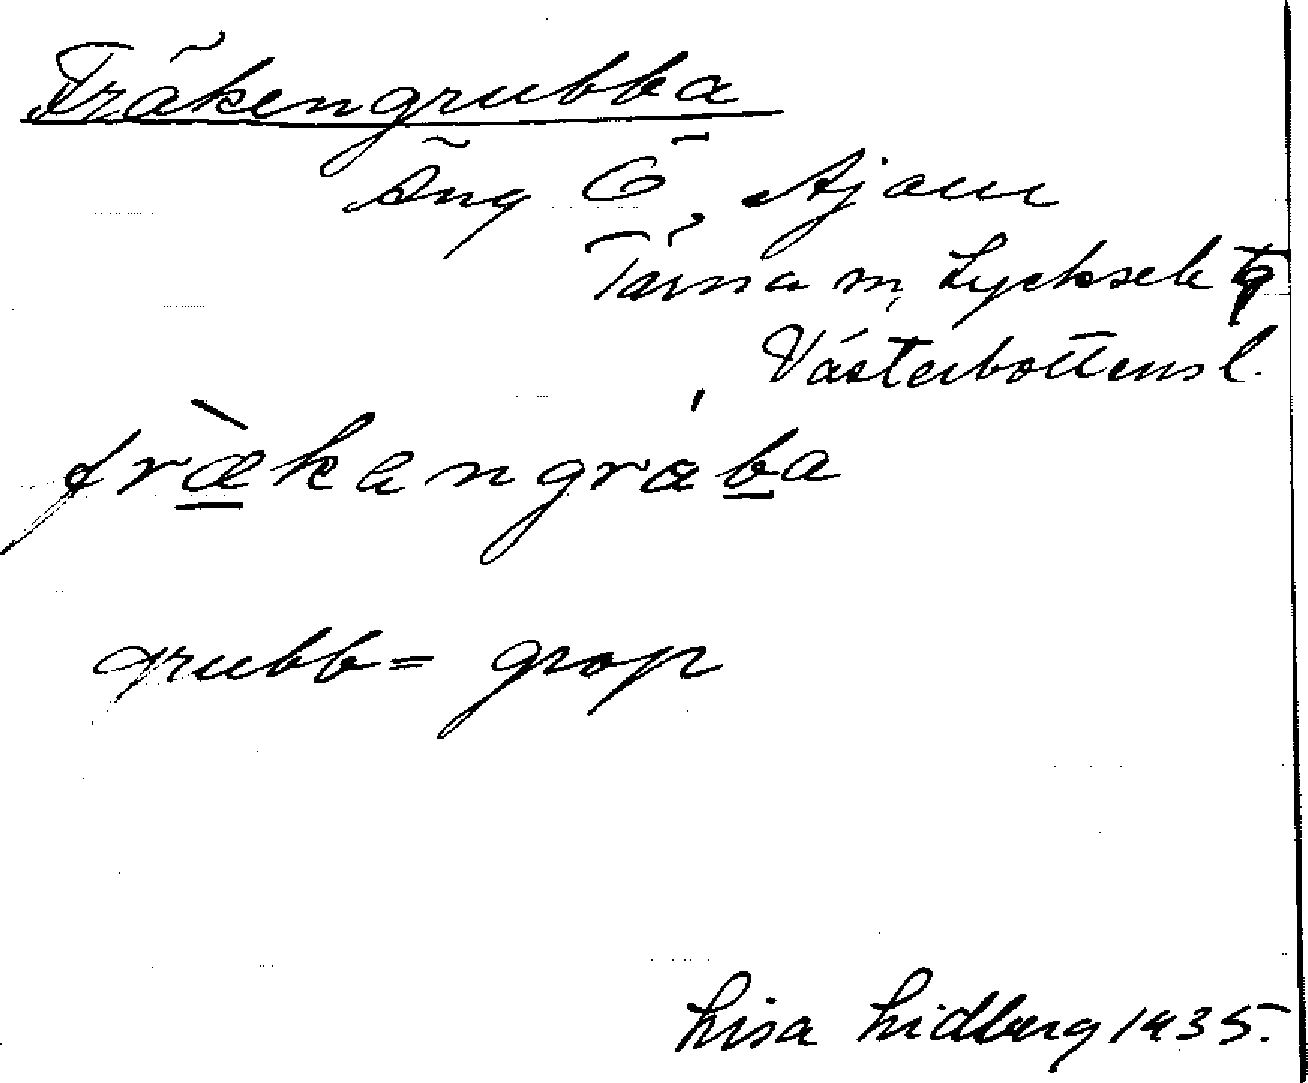 Fräkengrubba
Äng Ö. Ajaur
Tärna sn, Lycksele
Västerbottens l.
fræ̀kangraba
grubb = grop
Lisa Lidberg 1935.